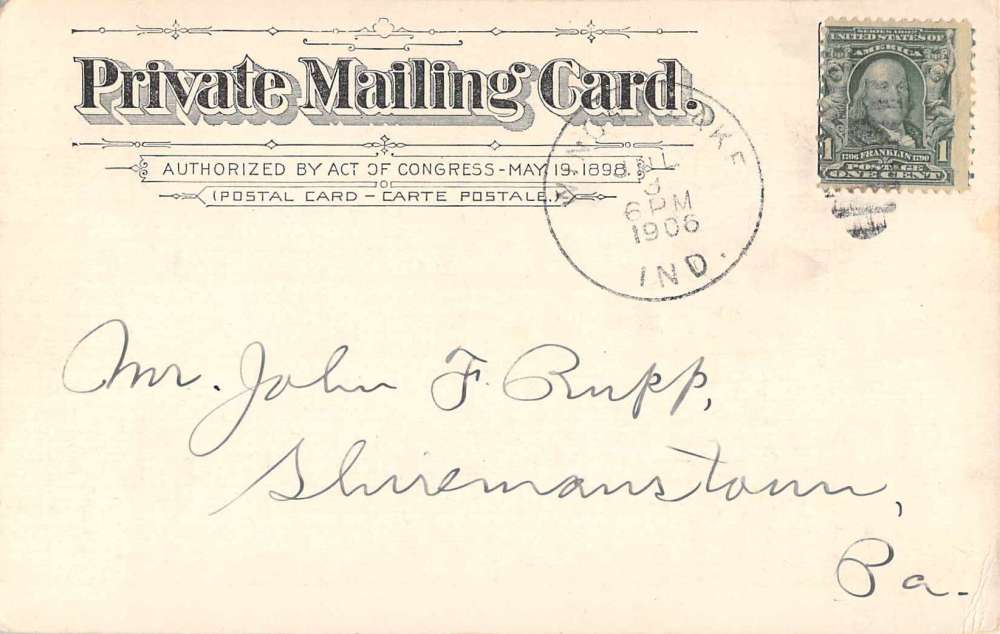 Private Mailing Card.
AUTHORIZED BY ACT OF CONGRESS - MAY 19, 1898.
(POSTAL CARD - CARTE POSTALE.)
SERIES 1902
UNITED STATES OF
AMERICA
1 1
1706 FRANKLIN 1790
POSTAGE
ONE CENT
LAKE
JUL
3
6 PM
1906
IND.
Mr. John F. Rupp,
Shiremanstown,
Pa.